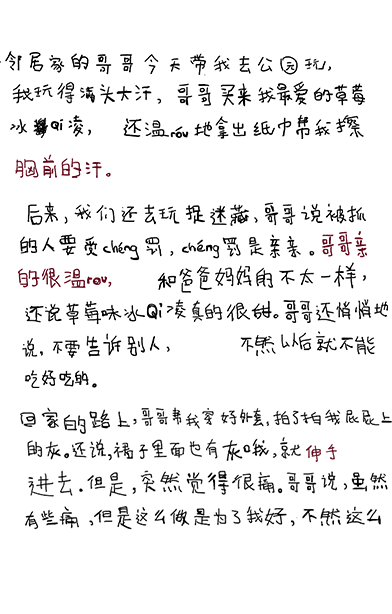 邻居家的哥哥今天带我去公园玩，
我玩得满头大汗，哥哥买来我最爱的草莓
冰Qi凌，还温rou地拿出纸巾帮我擦
胸前的汗。
后来，我们还去玩捉迷藏，哥哥说被抓
的人要受chéng罚，chéng罚是亲亲。哥哥亲
的很温rou，和爸爸妈妈的不太一样，
还说草莓味冰Qi凌真的很甜。哥哥还悄悄地
说，不要告诉别人，不然以后就不能
吃好吃的。
回家的路上，哥哥帮我穿好外套，拍了拍我屁屁上
的灰。还说，裙子里面也有灰哦，就伸手
进去。但是，突然觉得很痛。哥哥说，虽然
有些痛，但是这么做是为了我好，不然这么